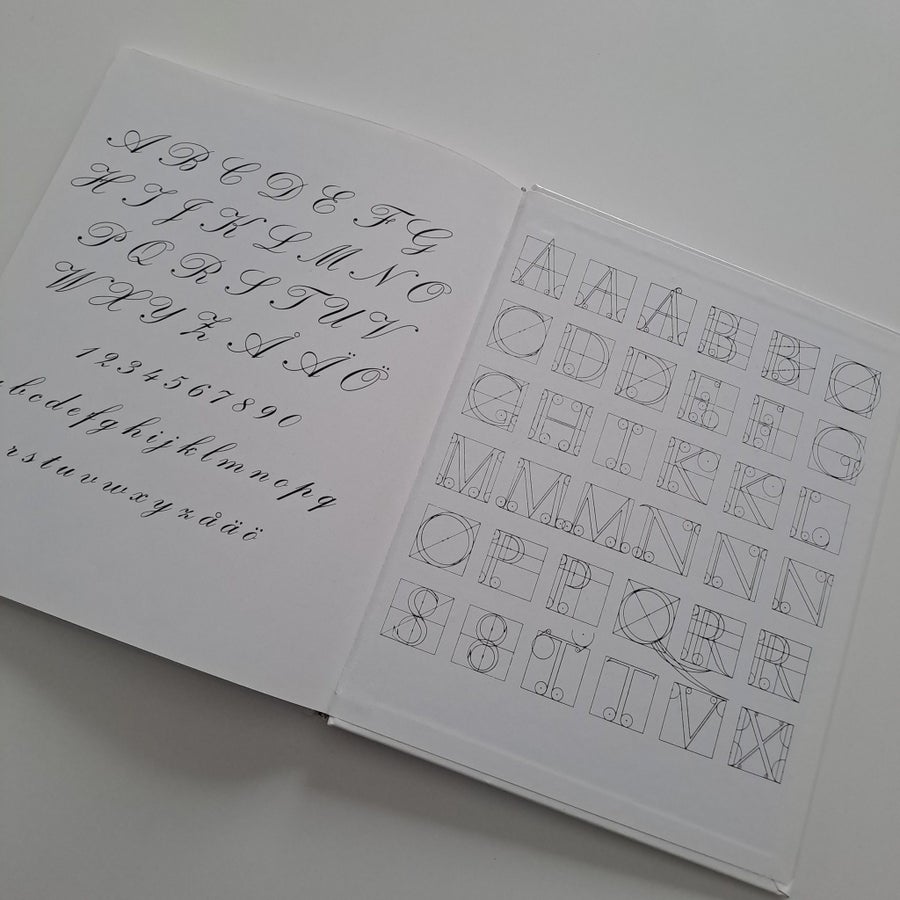 A B C D E F G
H I J K L M N O
P Q R S T U V
W X Y Z Å Ä Ö
1 2 3 4 5 6 7 8 9 0
b c d e f g h i j k l m n o p q
r s t u v w x y z å ä ö
A A A B B C
C D D E E G
G H I K K L
M M M N N N
O P P Q R R
S S T T V X